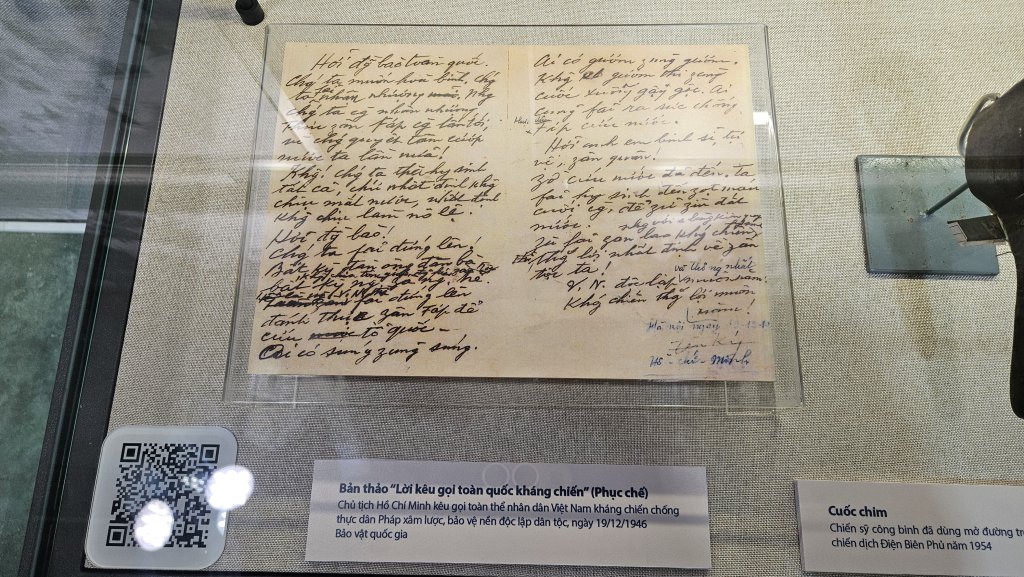 Hỡi đg bào toàn quốc.
Chg' ta muốn hoà bình, chg'
ta fải nhân nhượng. Nhg
chg' ta cg nhân nhượng
thực zân Fáp cg lấn tới,
vì chg' quyết tâm cướp
nước ta lần nữa!
Khg! chg' ta thà hy sinh
tất cả, chứ nhất định khg
chịu mất nước, nhất định
khg chịu làm nô lệ.
Hỡi đg bào!
Chg' ta fải đứng lên!
Bất kỳ đàn ông, đàn bà
bất kỳ
fải đứng lên
đánh thực zân Fáp để
cứu tổ quốc -
Ai có súng zùng súng.
Ai có gươm zùng gươm.
Khg có gươm thì zùng
cuốc xuổng gậy gộc. Ai
cũng fải ra sức chống
Fáp cứu nước.
Hỡi anh em binh sĩ, tự
vệ, zân quân.
Zờ cứu nước đã đến, ta
fải hy sinh đến zọt máu
cuối cg, để zữ zìn đất
nước.
Zù fải zan lao khg' chiến,
thg' lợi nhất định về zân
tộc ta!
V. N. độc lập và thống nhất muôn năm!
Khg' chiến thg' lợi muôn
năm!
Hà nội ngày
Hồ - chí - Minh
Bản thảo “Lời kêu gọi toàn quốc kháng chiến” (Phục chế)
Chủ tịch Hồ Chí Minh kêu gọi toàn thể nhân dân Việt Nam kháng chiến chống
thực dân Pháp xâm lược, bảo vệ nền độc lập dân tộc, ngày 19/12/1946
Bảo vật quốc gia
Cuốc chim
Chiến sỹ công binh đã dùng mở đường
chiến dịch Điện Biên Phủ năm 1954